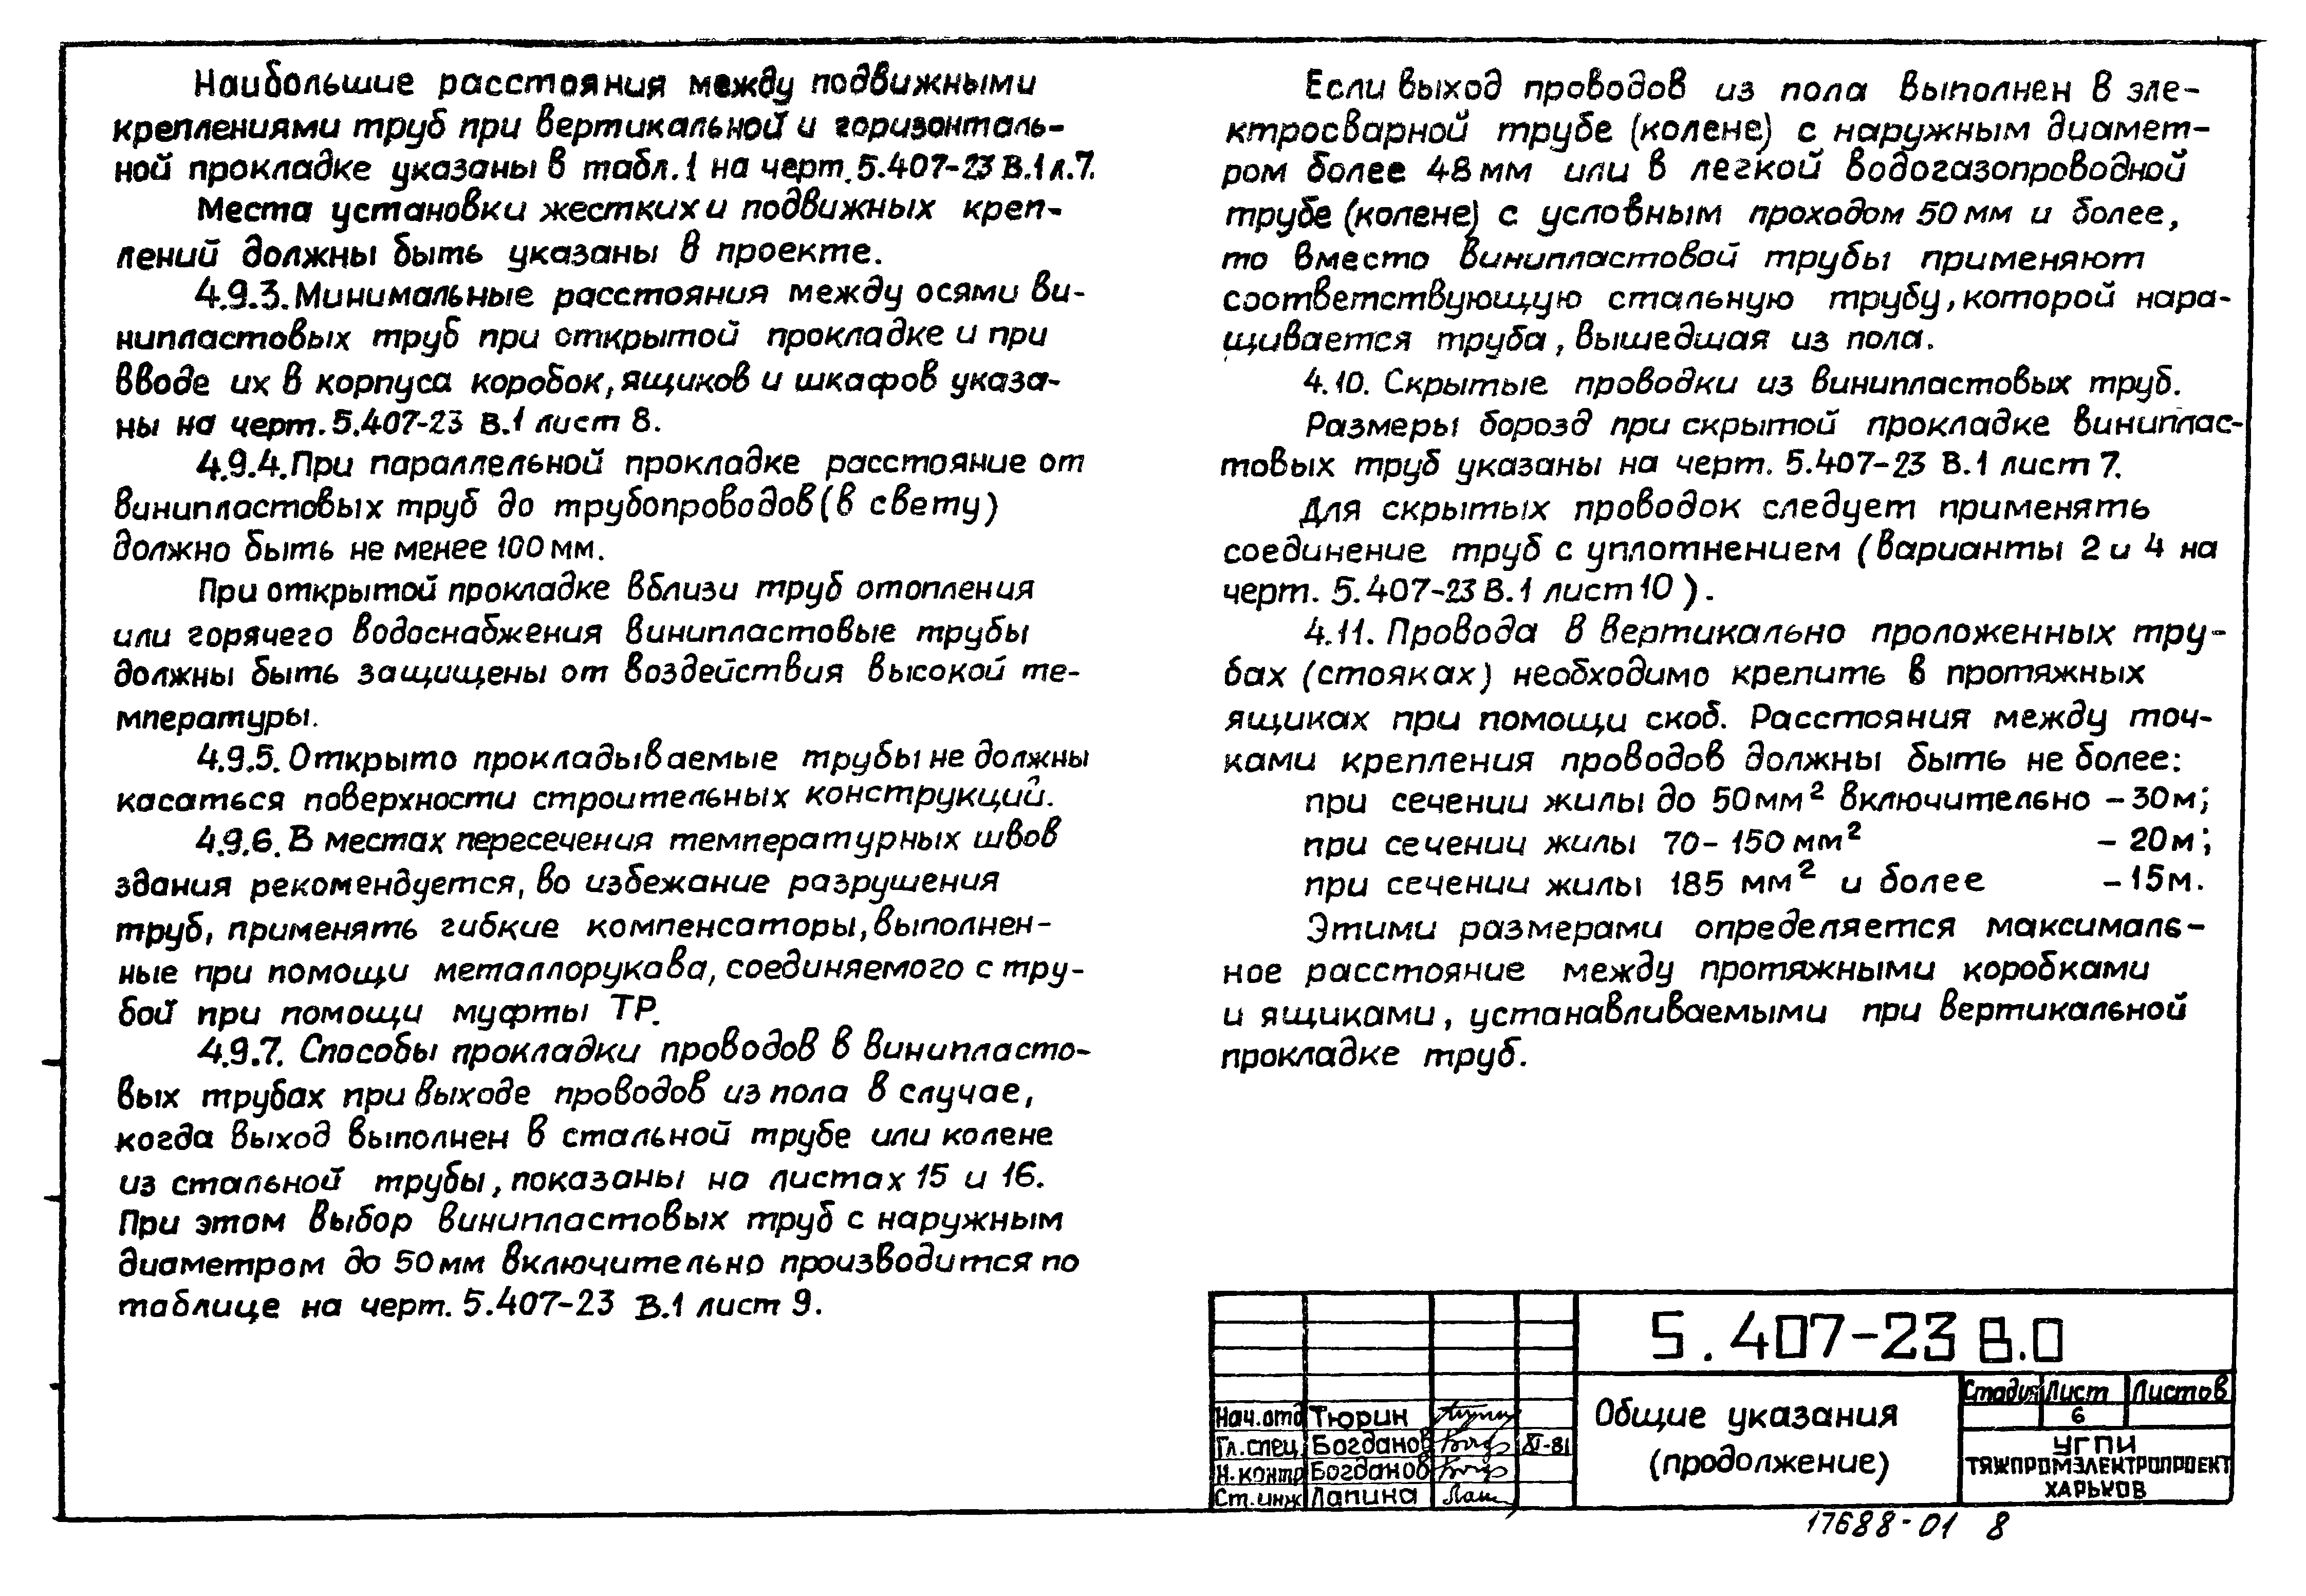 Наибольшие расстояния между подвижными
креплениями труб при вертикальной и горизонталь-
ной прокладке указаны в табл.1 на черт.5.407-23 В.1 л.7.
Места установки жестких и подвижных креп-
лений должны быть указаны в проекте.
4.9.3. Минимальные расстояния между осями ви-
нипластовых труб при открытой прокладке и при
вводе их в корпуса коробок, ящиков и шкафов указа-
ны на черт. 5.407-23 В.1 лист 8.
4.9.4. При параллельной прокладке расстояние от
винипластовых труб до трубопроводов (в свету)
должно быть не менее 100 мм.
При открытой прокладке вблизи труб отопления
или горячего водоснабжения винипластовые трубы
должны быть защищены от воздействия высокой те-
мпературы.
4.9.5. Открыто прокладываемые трубы не должны
касаться поверхности строительных конструкций.
4.9.6. В местах пересечения температурных швов
здания рекомендуется, во избежание разрушения
труб, применять гибкие компенсаторы, выполнен-
ные при помощи металлорукава, соединяемого с тру-
бой при помощи муфты ТР.
4.9.7. Способы прокладки проводов в винипласто-
вых трубах при выходе проводов из пола в случае,
когда выход выполнен в стальной трубе или колене
из стальной трубы, показаны на листах 15 и 16.
При этом выбор винипластовых труб с наружным
диаметром до 50 мм включительно производится по
таблице на черт. 5.407-23 В.1 лист 9.
Если выход проводов из пола выполнен в эле-
ктросварной трубе (колене) с наружным диамет-
ром более 48 мм или в легкой водогазопроводной
трубе (колене) с условным проходом 50 мм и более,
то вместо винипластовой трубы применяют
соответствующую стальную трубу, которой нара-
щивается труба, вышедшая из пола.
4.10. Скрытые проводки из винипластовых труб.
Размеры борозд при скрытой прокладке виниплас-
товых труб указаны на черт. 5.407-23 В.1 лист 7.
Для скрытых проводок следует применять
соединение труб с уплотнением (варианты 2 и 4 на
черт. 5.407-23 В.1 лист 10).
4.11. Провода в вертикально проложенных тру-
бах (стояках) необходимо крепить в протяжных
ящиках при помощи скоб. Расстояния между точ-
ками крепления проводов должны быть не более:
при сечении жилы до 50 мм² включительно - 30 м;
при сечении жилы 70-150 мм² - 20 м;
при сечении жилы 185 мм² и более - 15 м.
Этими размерами определяется максималь-
ное расстояние между протяжными коробками
и ящиками, устанавливаемыми при вертикальной
прокладке труб.
5.407-23 В.0
Общие указания
(продолжение)
Стадия Лист Листов
6
УГПИ
ТЯЖПРОМЭЛЕКТРОПРОЕКТ
ХАРЬКОВ
Нач.отд Тюрин
Гл.спец. Богданов XI-81
Н.контр Богданов
Ст.инж Лапина
17688-01 8